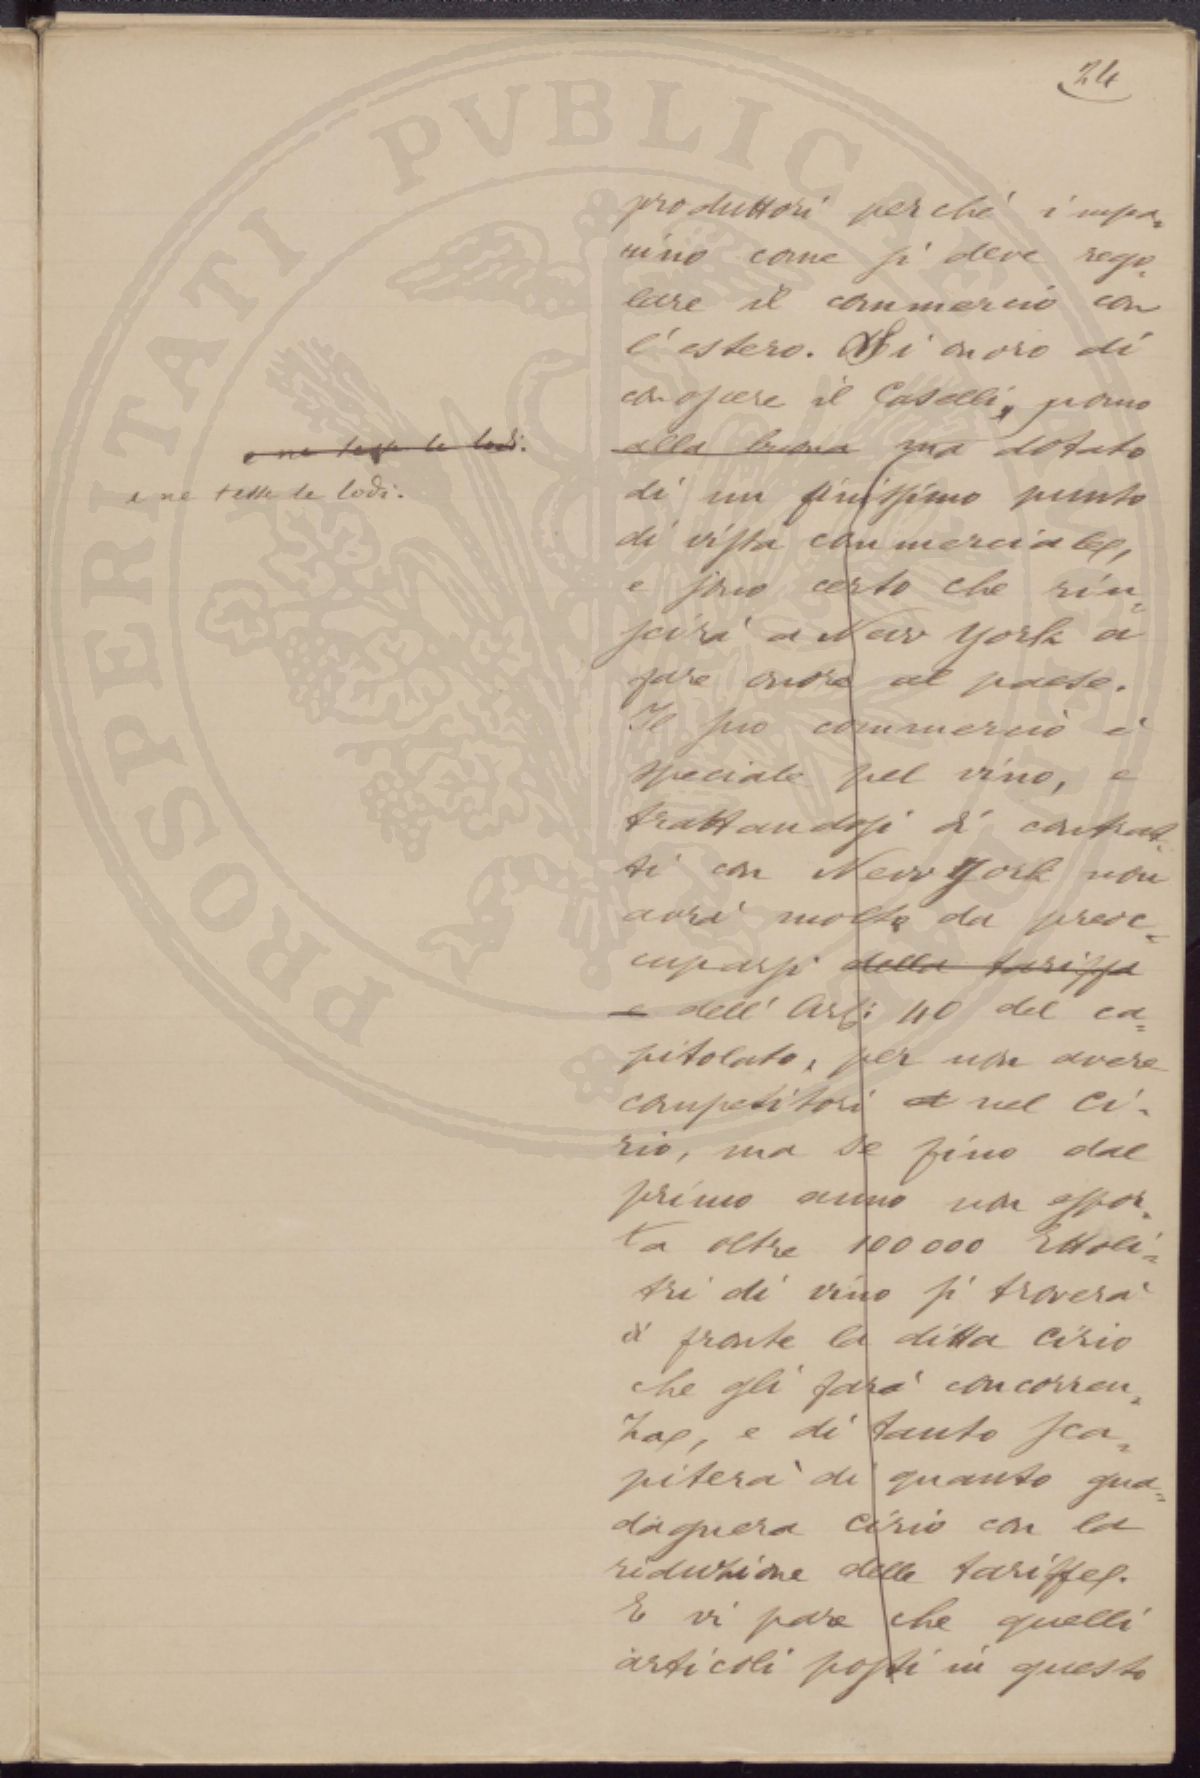 24
produttori perché impa-
rino come si deve rego-
lare il commercio con
l'estero. Si onoro di
conoscere il Caselli, uomo
alla buona ma dotato
di un finissimo punto
di vista commerciale,
e sono certo che riu-
scirà a New York a
fare onore al paese.
Il suo commercio è
speciale pel vino, e
trattandosi di contrat-
ti con New York non
avrà molto da preoc-
cuparsi della tariffa
e dell'Art: 40 del ca-
pitolato, per non avere
competitori nel Ci-
rio, ma se fino dal
primo anno non espor-
ta oltre 100000 Ettoli-
tri di vino si troverà
di fronte la ditta Cirio
che gli farà concorren-
za, e di tanto sca-
piterà di quanto gua-
dagnera Cirio con la
riduzione delle tariffe.
E vi pare che quelli
articoli posti in questo
e ne tesse le lodi.
e ne tesse le lodi.
PROSPERITATI PVBLICAE